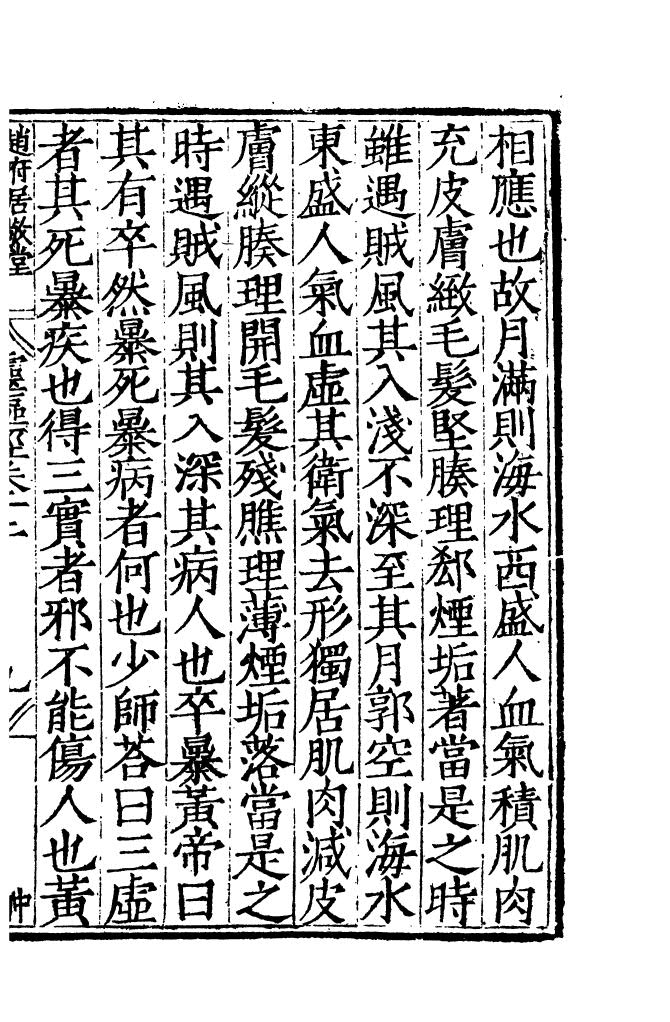 相應也故月滿則海水西盛人血氣積肌肉
充皮膚緻毛髮堅腠理郄煙垢著當是之時
雖遇賊風其入淺不深至其月郭空則海水
東盛人氣血虛其衛氣去形獨居肌肉減皮
膚縱腠理開毛髮殘膲理薄煙垢落當是之
時遇賊風則其入深其病人也卒暴黃帝曰
其有卒然暴死暴病者何也少師荅曰三虛
者其死暴疾也得三實者邪不能傷人也黃
趙府居敬堂
靈樞經卷十二
仲